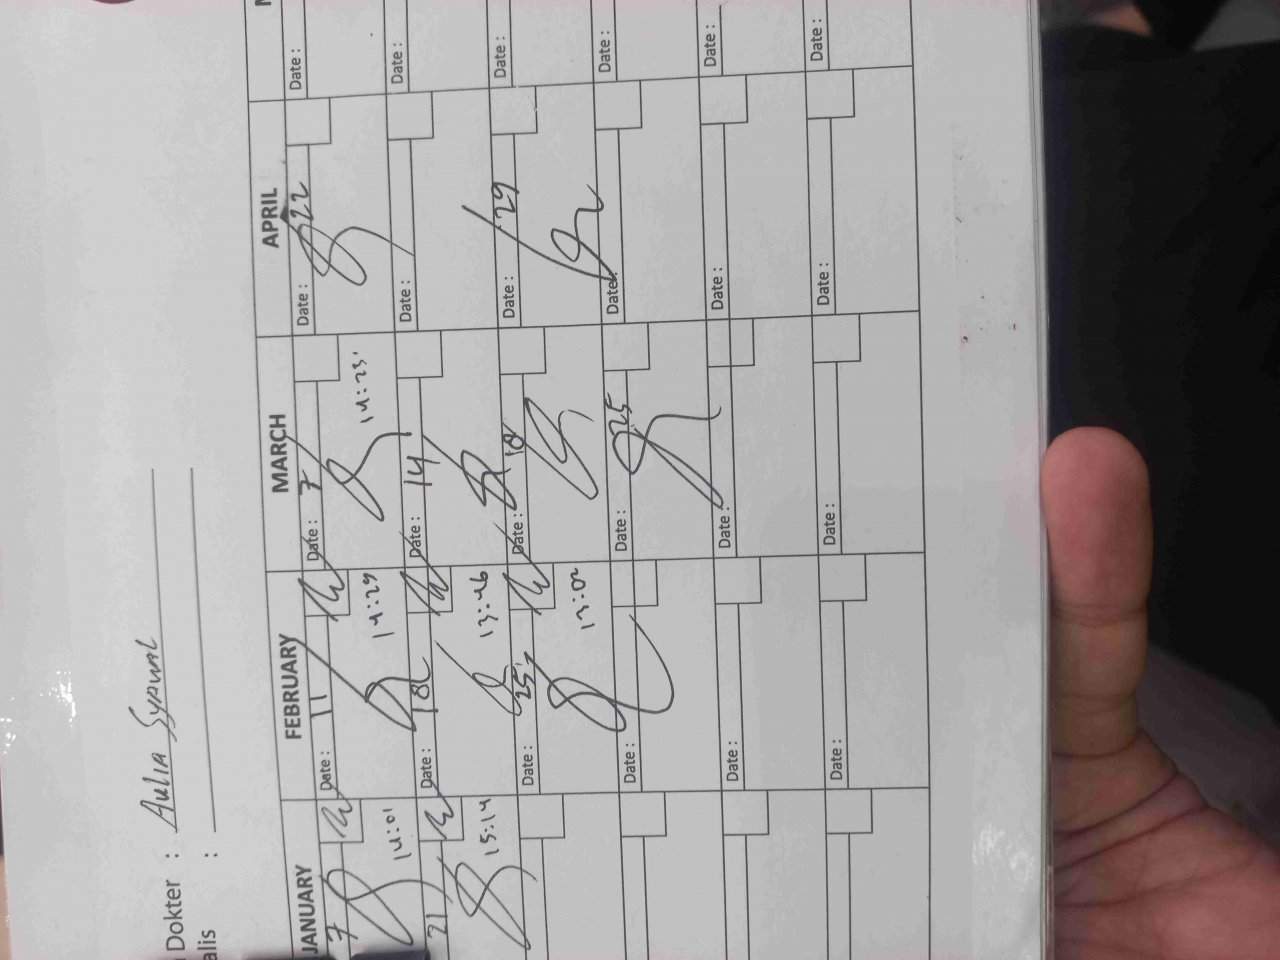 Dokter : Aulia Syawal
alis :
JANUARY FEBRUARY MARCH APRIL
7 Date : 11 Date : 7 Date : 22 Date :
14:01 14:29 14:25
21 Date : 18 Date : 14 Date : Date :
15:14 13:46
Date : 25 Date : 18 Date : 29 Date :
13:02
Date : Date : 25 Date : Date :
Date : Date : Date : Date :
Date : Date : Date : Date :